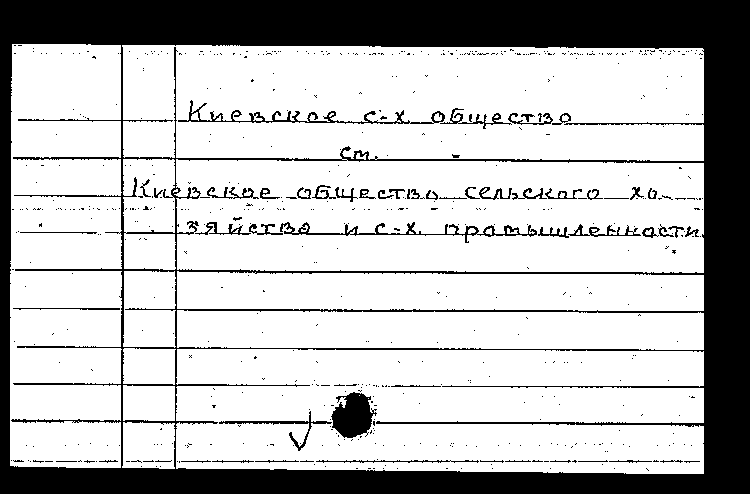 Киевское с-х. общество
см.
Киевское общество сельского хо-
зяйства и с-х. промышленности.